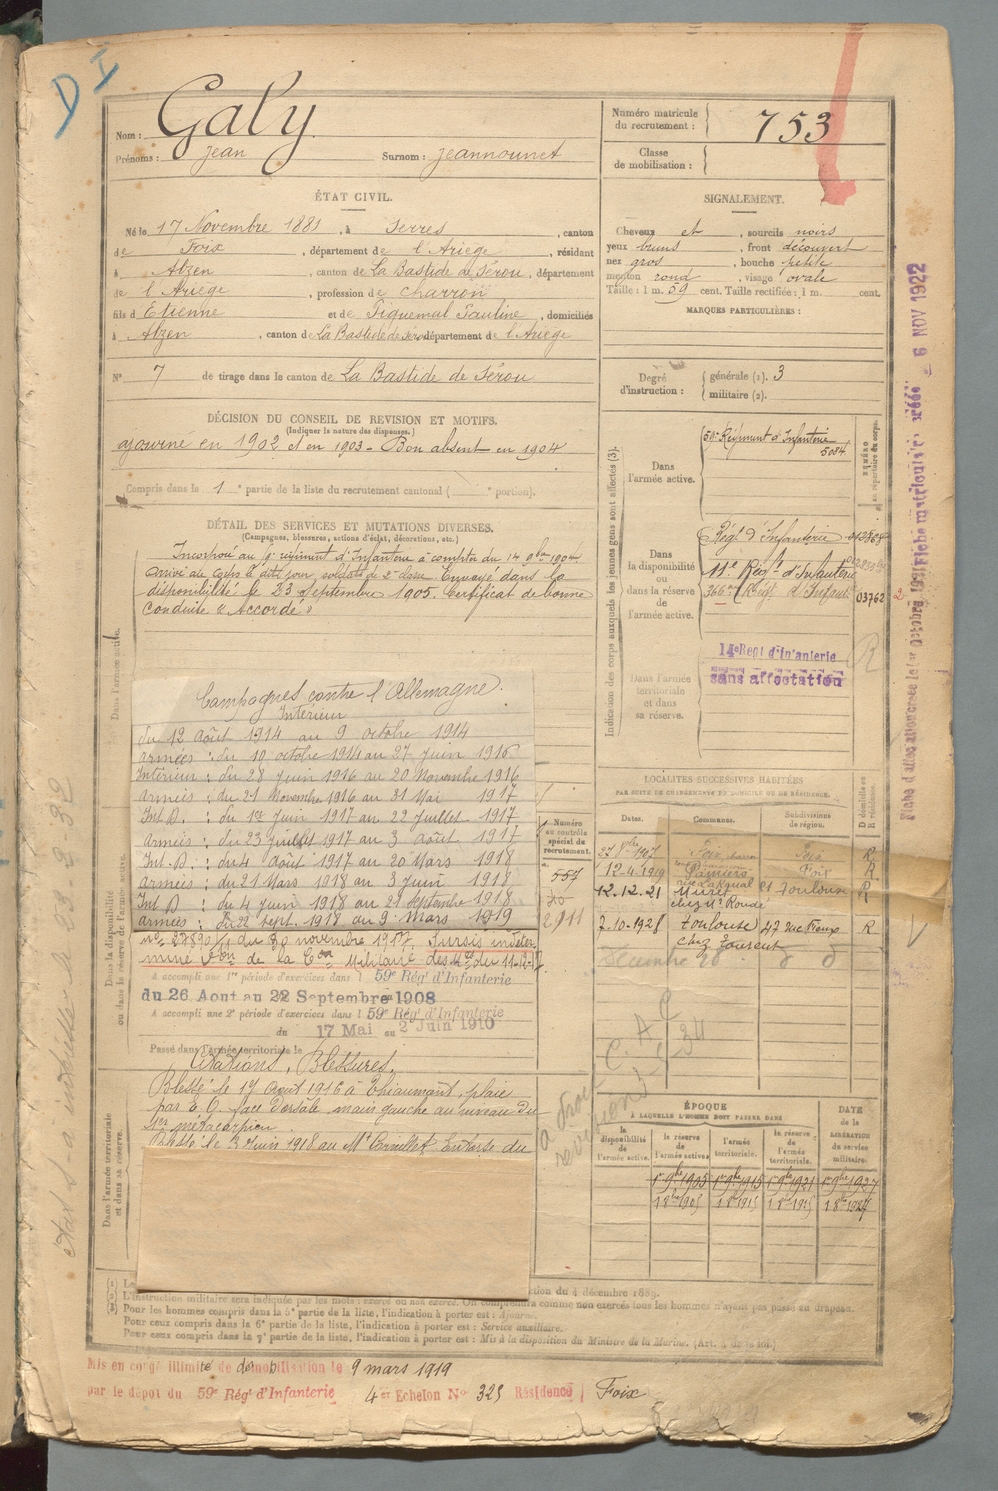 D I
Nom : Galy
Prénoms : Jean Surnom : Jeannounet
Numéro matricule du recrutement : 753
Classe de mobilisation :
ÉTAT CIVIL.
Né le 17 Novembre 1881, à Serres, canton
de Foix, département de l'Ariège, résidant
à Alzen, canton de La Bastide de Sérou, département
de l'Ariège, profession de charron
fils d Etienne et de Piquemal Pauline, domiciliés
à Alzen, canton de La Bastide de Sérou département de l'Ariège
N° 7 de tirage dans le canton de La Bastide de Sérou
SIGNALEMENT.
Cheveux et, sourcils noirs
yeux bruns, front découvert
nez gros, bouche petite
menton rond, visage ovale
Taille : 1 m. 59 cent. Taille rectifiée : 1 m. cent.
MARQUES PARTICULIÈRES :
Degré d'instruction : générale (1). 3
militaire (2).
DÉCISION DU CONSEIL DE REVISION ET MOTIFS.
(Indiquer la nature des dispenses.)
ajourné en 1902 et en 1903 - Bon absent en 1904
Compris dans la 1e partie de la liste du recrutement cantonal ( e portion).
DÉTAIL DES SERVICES ET MUTATIONS DIVERSES.
(Campagnes, blessures, actions d'éclat, décorations, etc.)
Incorporé au régiment d'Infanterie à compter du 14 9bre 1904.
Arrivé au Corps le dit jour, soldat de 2e classe. Envoyé dans la
disponibilité le 23 Septembre 1905. Certificat de bonne
conduite "Accordé"
Dans l'armée active.
Campagnes contre l'Allemagne.
Intérieur
du 12 Août 1914 au 9 octobre 1914
armées : du 10 octobre 1914 au 27 juin 1916
Intérieur : du 28 juin 1916 au 20 Novembre 1916
Armées : du 21 Novembre 1916 au 31 Mai 1917
Int. D. : du 1er juin 1917 au 22 juillet 1917
Armées : du 23 juillet 1917 au 3 août 1917
Int. D. : du 4 août 1917 au 20 Mars 1918
Armées : du 21 Mars 1918 au 3 juin 1918
Int D : du 4 juin 1918 au 21 septembre 1918
armées : du 22 sept. 1918 au 9 mars 1919
Dans la disponibilité ou dans la réserve de l'armée active.
du 30 novembre 1917. Sursis indéter-
miné
A accompli une 1re période d'exercices dans l 59e Rég' d'Infanterie
du 26 Aout au 22 Septembre 1908
A accompli une 2e période d'exercices dans l 59e Rég' d'Infanterie
du 17 Mai au 2 Juin 1910
Passé dans l'armée territoriale le
Citations. Blessures.
Blessé le 17 Août 1916 à Thiaumont, plaie
par E. O. face dorsale main gauche au niveau du
1er métacarpien.
Blessé le 3 juin 1918 au Mt Cornillet Entorse du
Dans l'armée territoriale et dans sa réserve.
Indication des corps auxquels les jeunes gens sont affectés (3).
Dans l'armée active. 50e Régiment d'Infanterie 5084
NUMÉRO au répertoire du corps.
Dans la disponibilité ou dans la réserve de l'armée active.
Régt d'Infanterie
11e Régt d'Infanterie
366e Régt d'Infant. 03762
Dans l'armée territoriale et dans sa réserve.
14e Régt d'Infanterie
sans affectation
R
LOCALITÉS SUCCESSIVES HABITÉES
PAR SUITE DE CHANGEMENTS DE DOMICILE OU DE RÉSIDENCE.
Dates. Communes. Subdivisions de région. D domicile ou R résidence.
Foix Foix R
12-4-1919 Pamiers Foix R
12.12.21 Muret Toulouse R
7-10-1928 Toulouse 47 R
Numéro au contrôle spécial du recrutement.
557
2911
à droit
ÉPOQUE
À LAQUELLE L'HOMME DOIT PASSER DANS
la disponibilité de l'armée active. la réserve de l'armée active. l'armée territoriale. la réserve de l'armée territoriale. DATE de la LIBÉRATION du service militaire.
1er 9bre 1905 1er 9bre 1915 1er 9bre 1921 1er 9bre 1927
L'instruction militaire sera indiquée par les mots : exercé ou non exercé. On comprendra comme non exercés tous les hommes n'ayant pas passé au drapeau.
Pour les hommes compris dans la 5e partie de la liste, l'indication à porter est : Ajourné.
Pour ceux compris dans la 6e partie de la liste, l'indication à porter est : Service auxiliaire.
Pour ceux compris dans la 7e partie de la liste, l'indication à porter est : Mis à la disposition du Ministre de la Marine.
Mis en congé illimité de démobilisation le 9 mars 1919
par le dépôt du 59e Rég' d'Infanterie 4er Echelon N° 325 Résidence Foix
Fiche matriculaire créée 6 NOV 1922